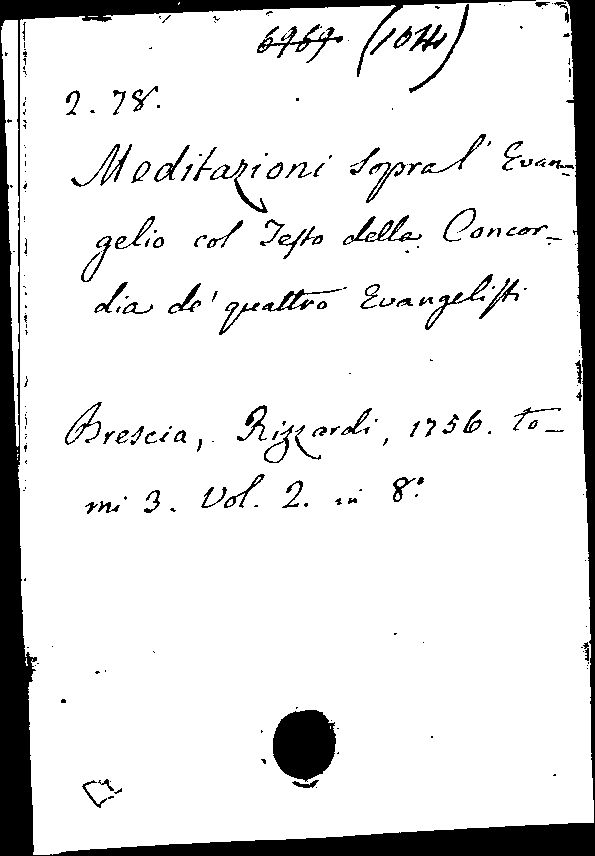 6969. (1014)
2. 78.
Meditazioni sopra l' Evan-
gelio col Testo della Concor-
dia de' quattro Evangelisti
Brescia, Rizzardi, 1756. to-
mi 3. Vol. 2. in 8.º